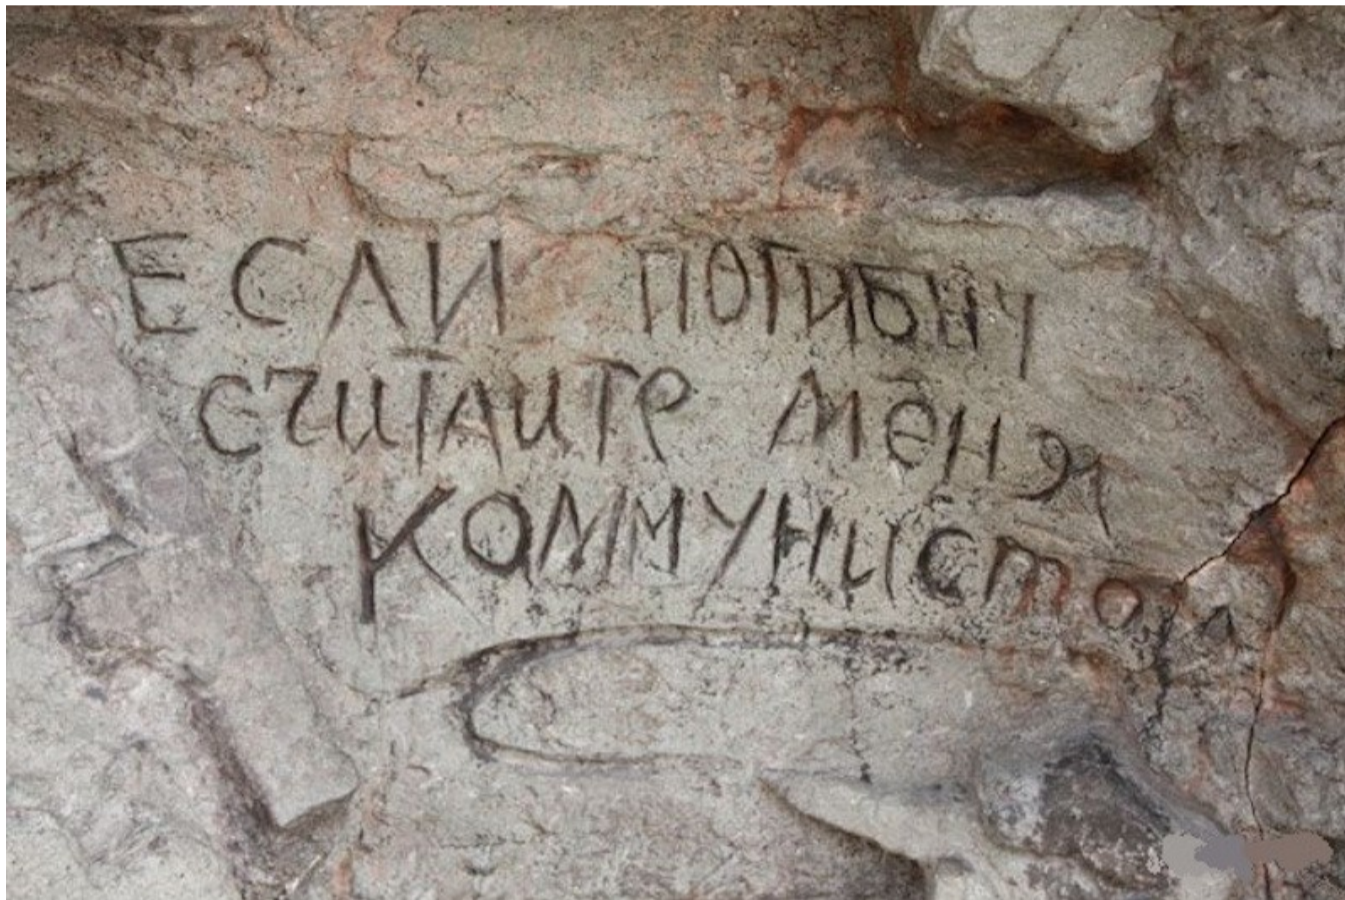 ЕСЛИ ПОГИБНУ
СЧИТАЙТЕ МЕНЯ
КОММУНИСТОМ